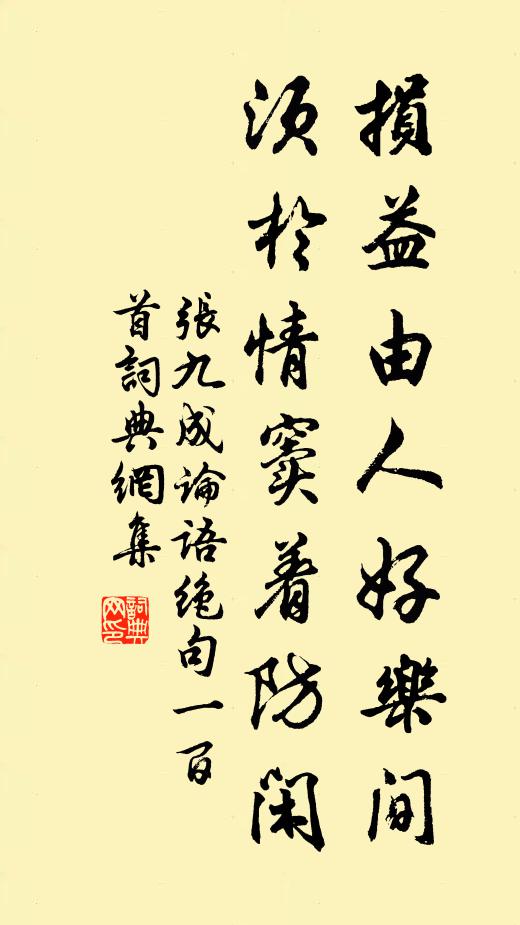 損益由人好樂间
须於情窦着防闲
張九成論語绝句一百
首詞典網集
詞典
网印